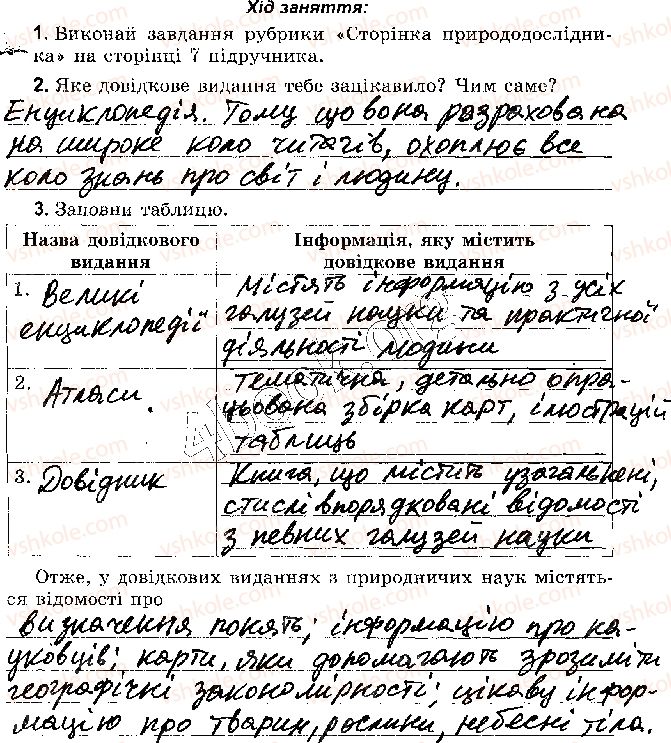 Хід заняття:
1. Виконай завдання рубрики «Сторінка природодослідни-
ка» на сторінці 7 підручника.
2. Яке довідкове видання тебе зацікавило? Чим саме?
Енциклопедія. Тому що вона разрахована
на широке коло читачів, охоплює все
коло знань про світ і людину.
3. Заповни таблицю.
Назва довідкового
видання
Інформація, яку містить
довідкове видання
1. Великі
енциклопедії
Містять інформацію з усіх
галузей науки та практичної
діяльності людини
2. Атласи.
тематична, детально опра-
цьована збірка карт, ілюстрацій
таблиць
3. Довідник
Книга, що містить узагальнені,
стислі впорядковані відомості
з певних галузей науки
Отже, у довідкових виданнях з природничих наук містять-
ся відомості про
визначення понять; інформацію про на-
уковців; карти, яки допомагають зрозиміти
географічні закономірності; цікаву інфор-
мацію про тварин, рослини, небесні тіла.